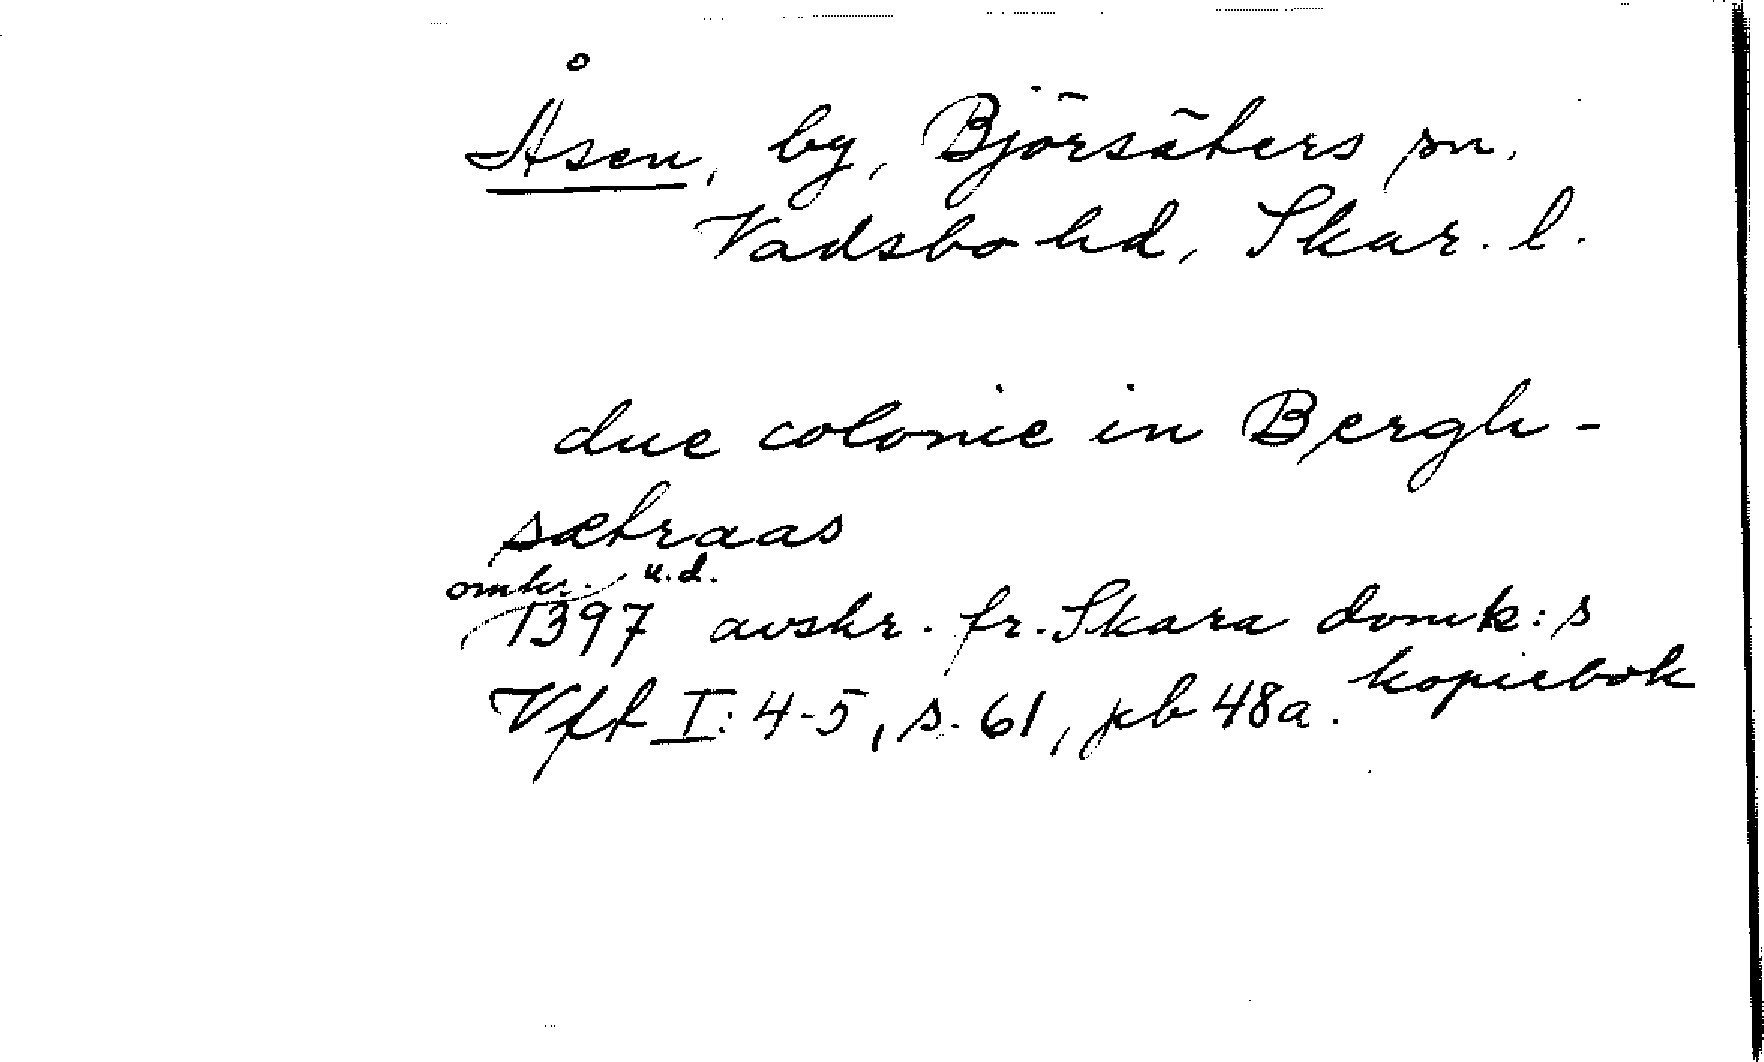 Åsen, by, Björsäters sn.
Vadsbo hd, Skar. l.
due colonie in Bergh-
sætraas
omkr. u.d.
1397 avskr. fr. Skara domk:s
kopiebok
Vft I: 4-5, s. 61, pb 48a.